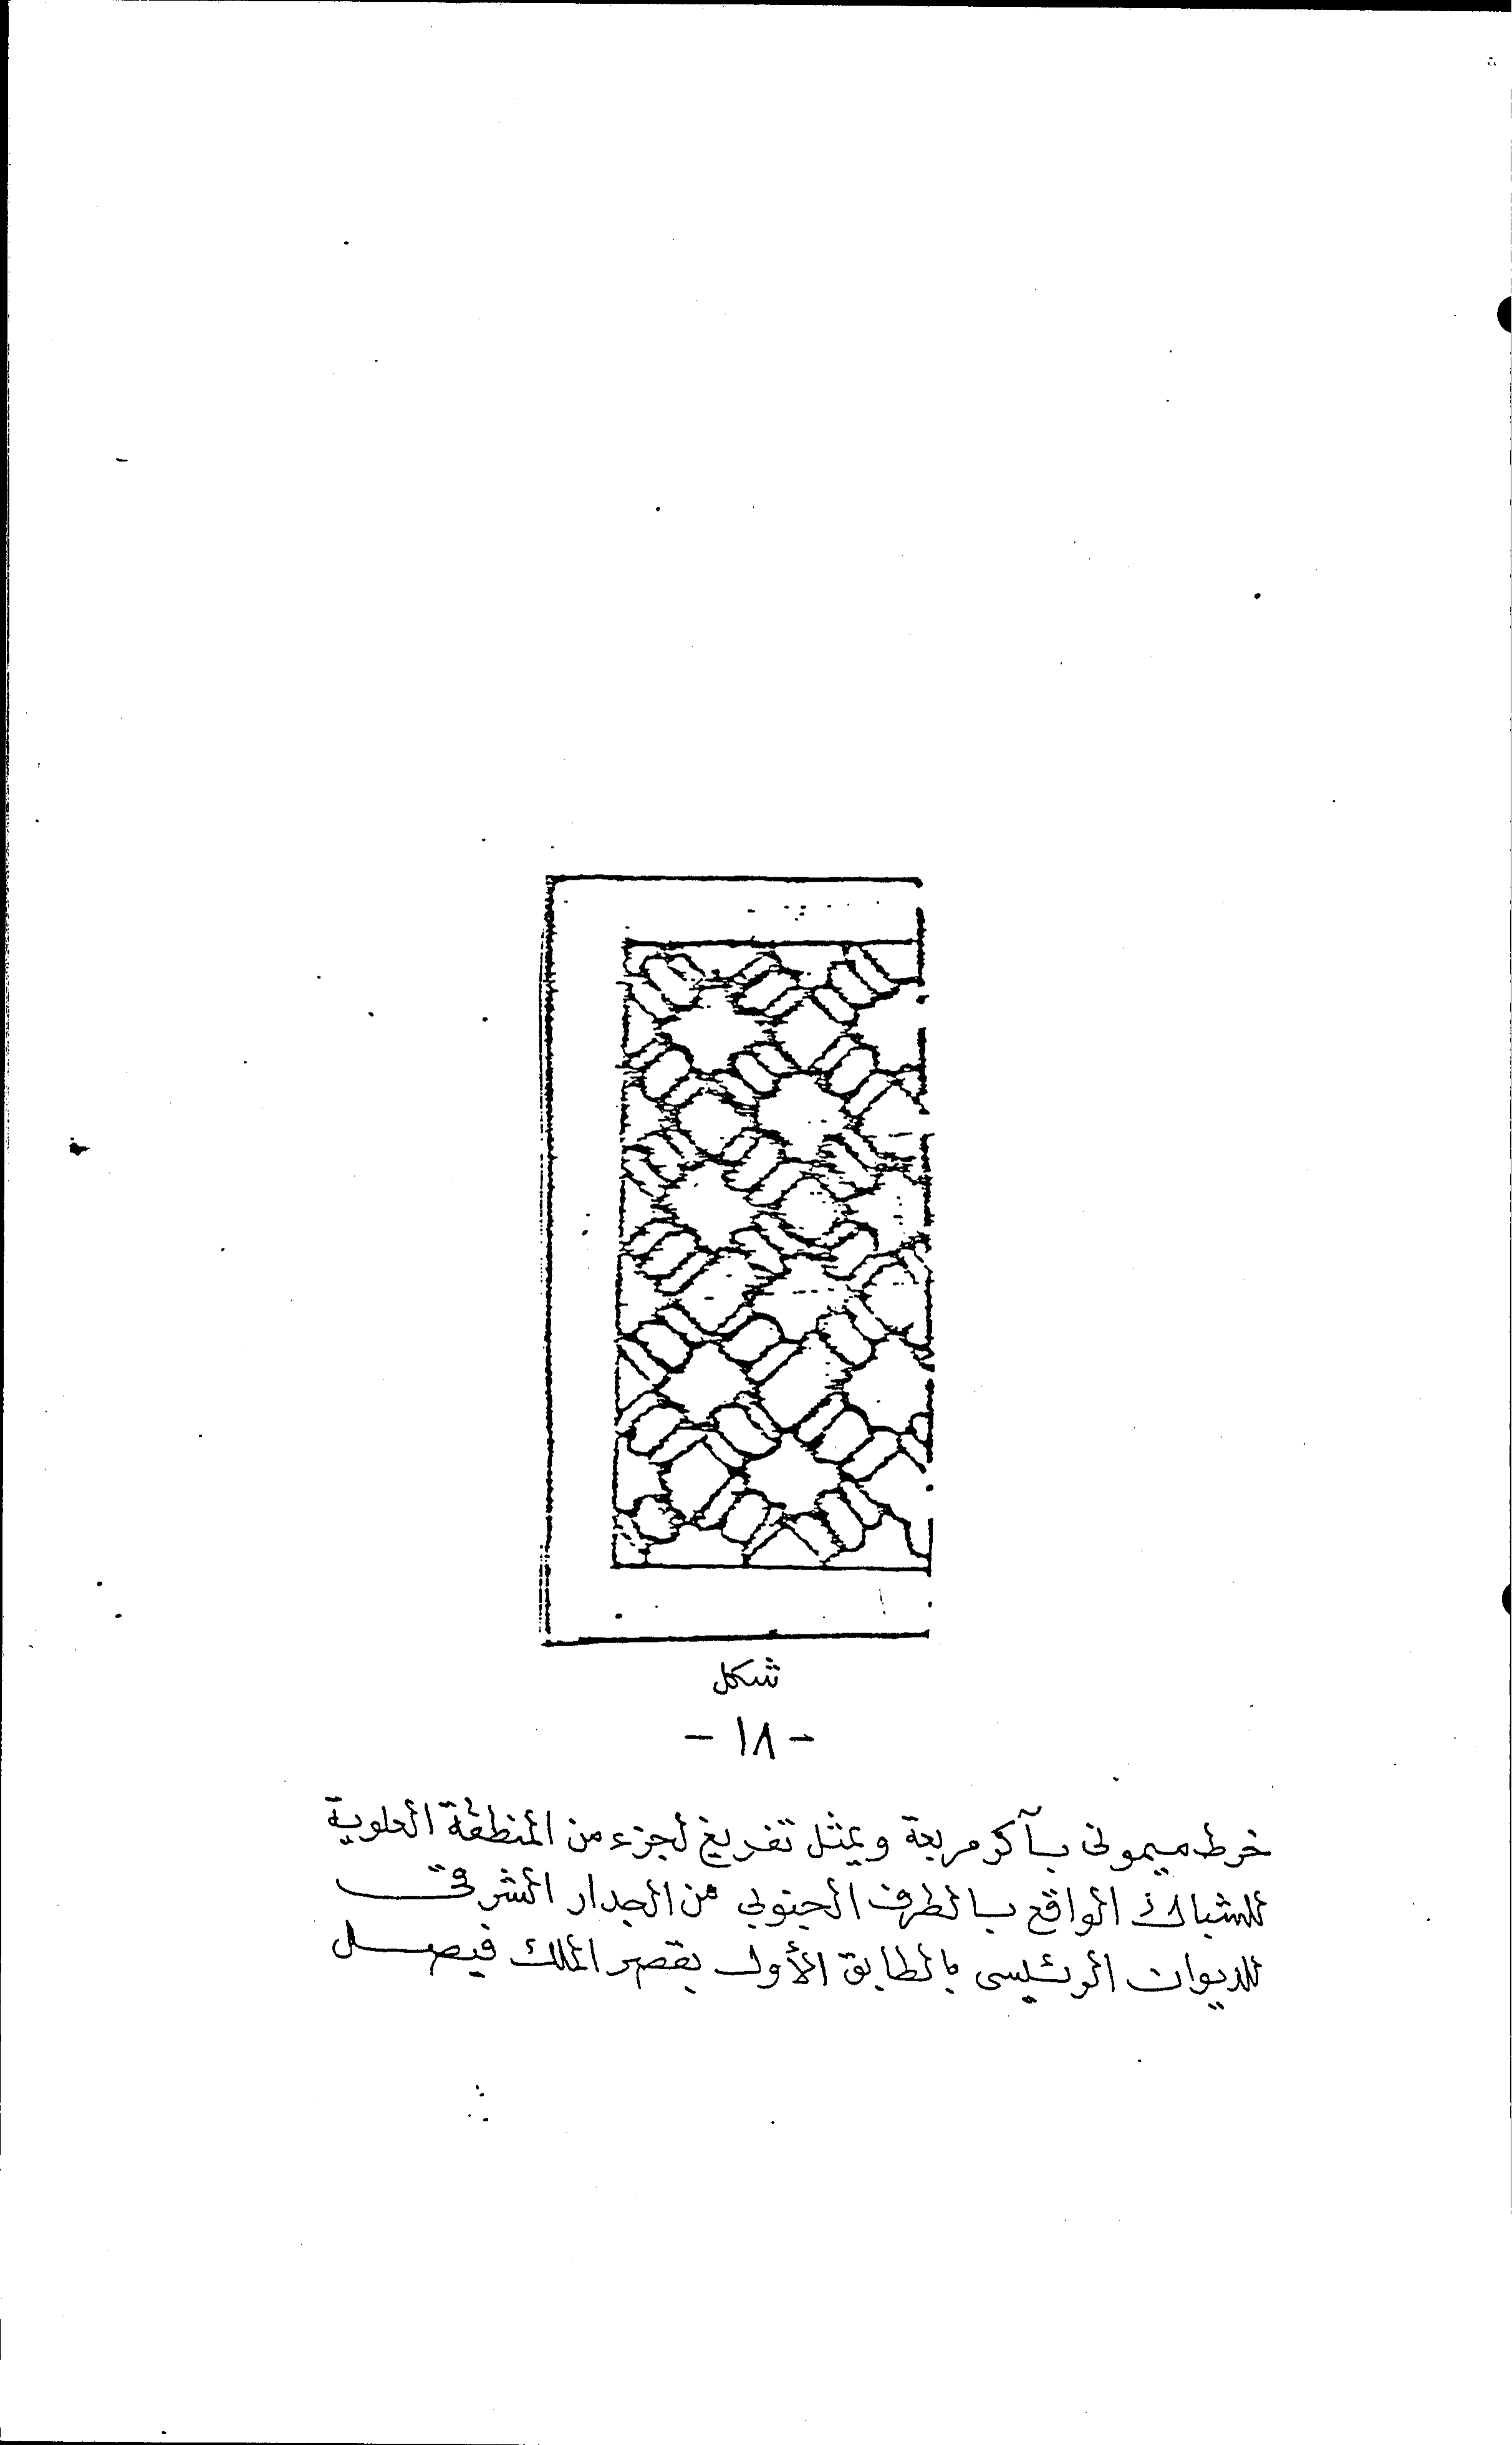 شكل
- ١٨ -
خرط ميمونى بآكر مربعة ويمثل تفريغ لجزء من المنطقة العلوية
للشباك الواقع بالطرف الجنوبي من الجدار الشرقى
للديوان الرئيسى بالطابق الأول بقصر الملك فيصل